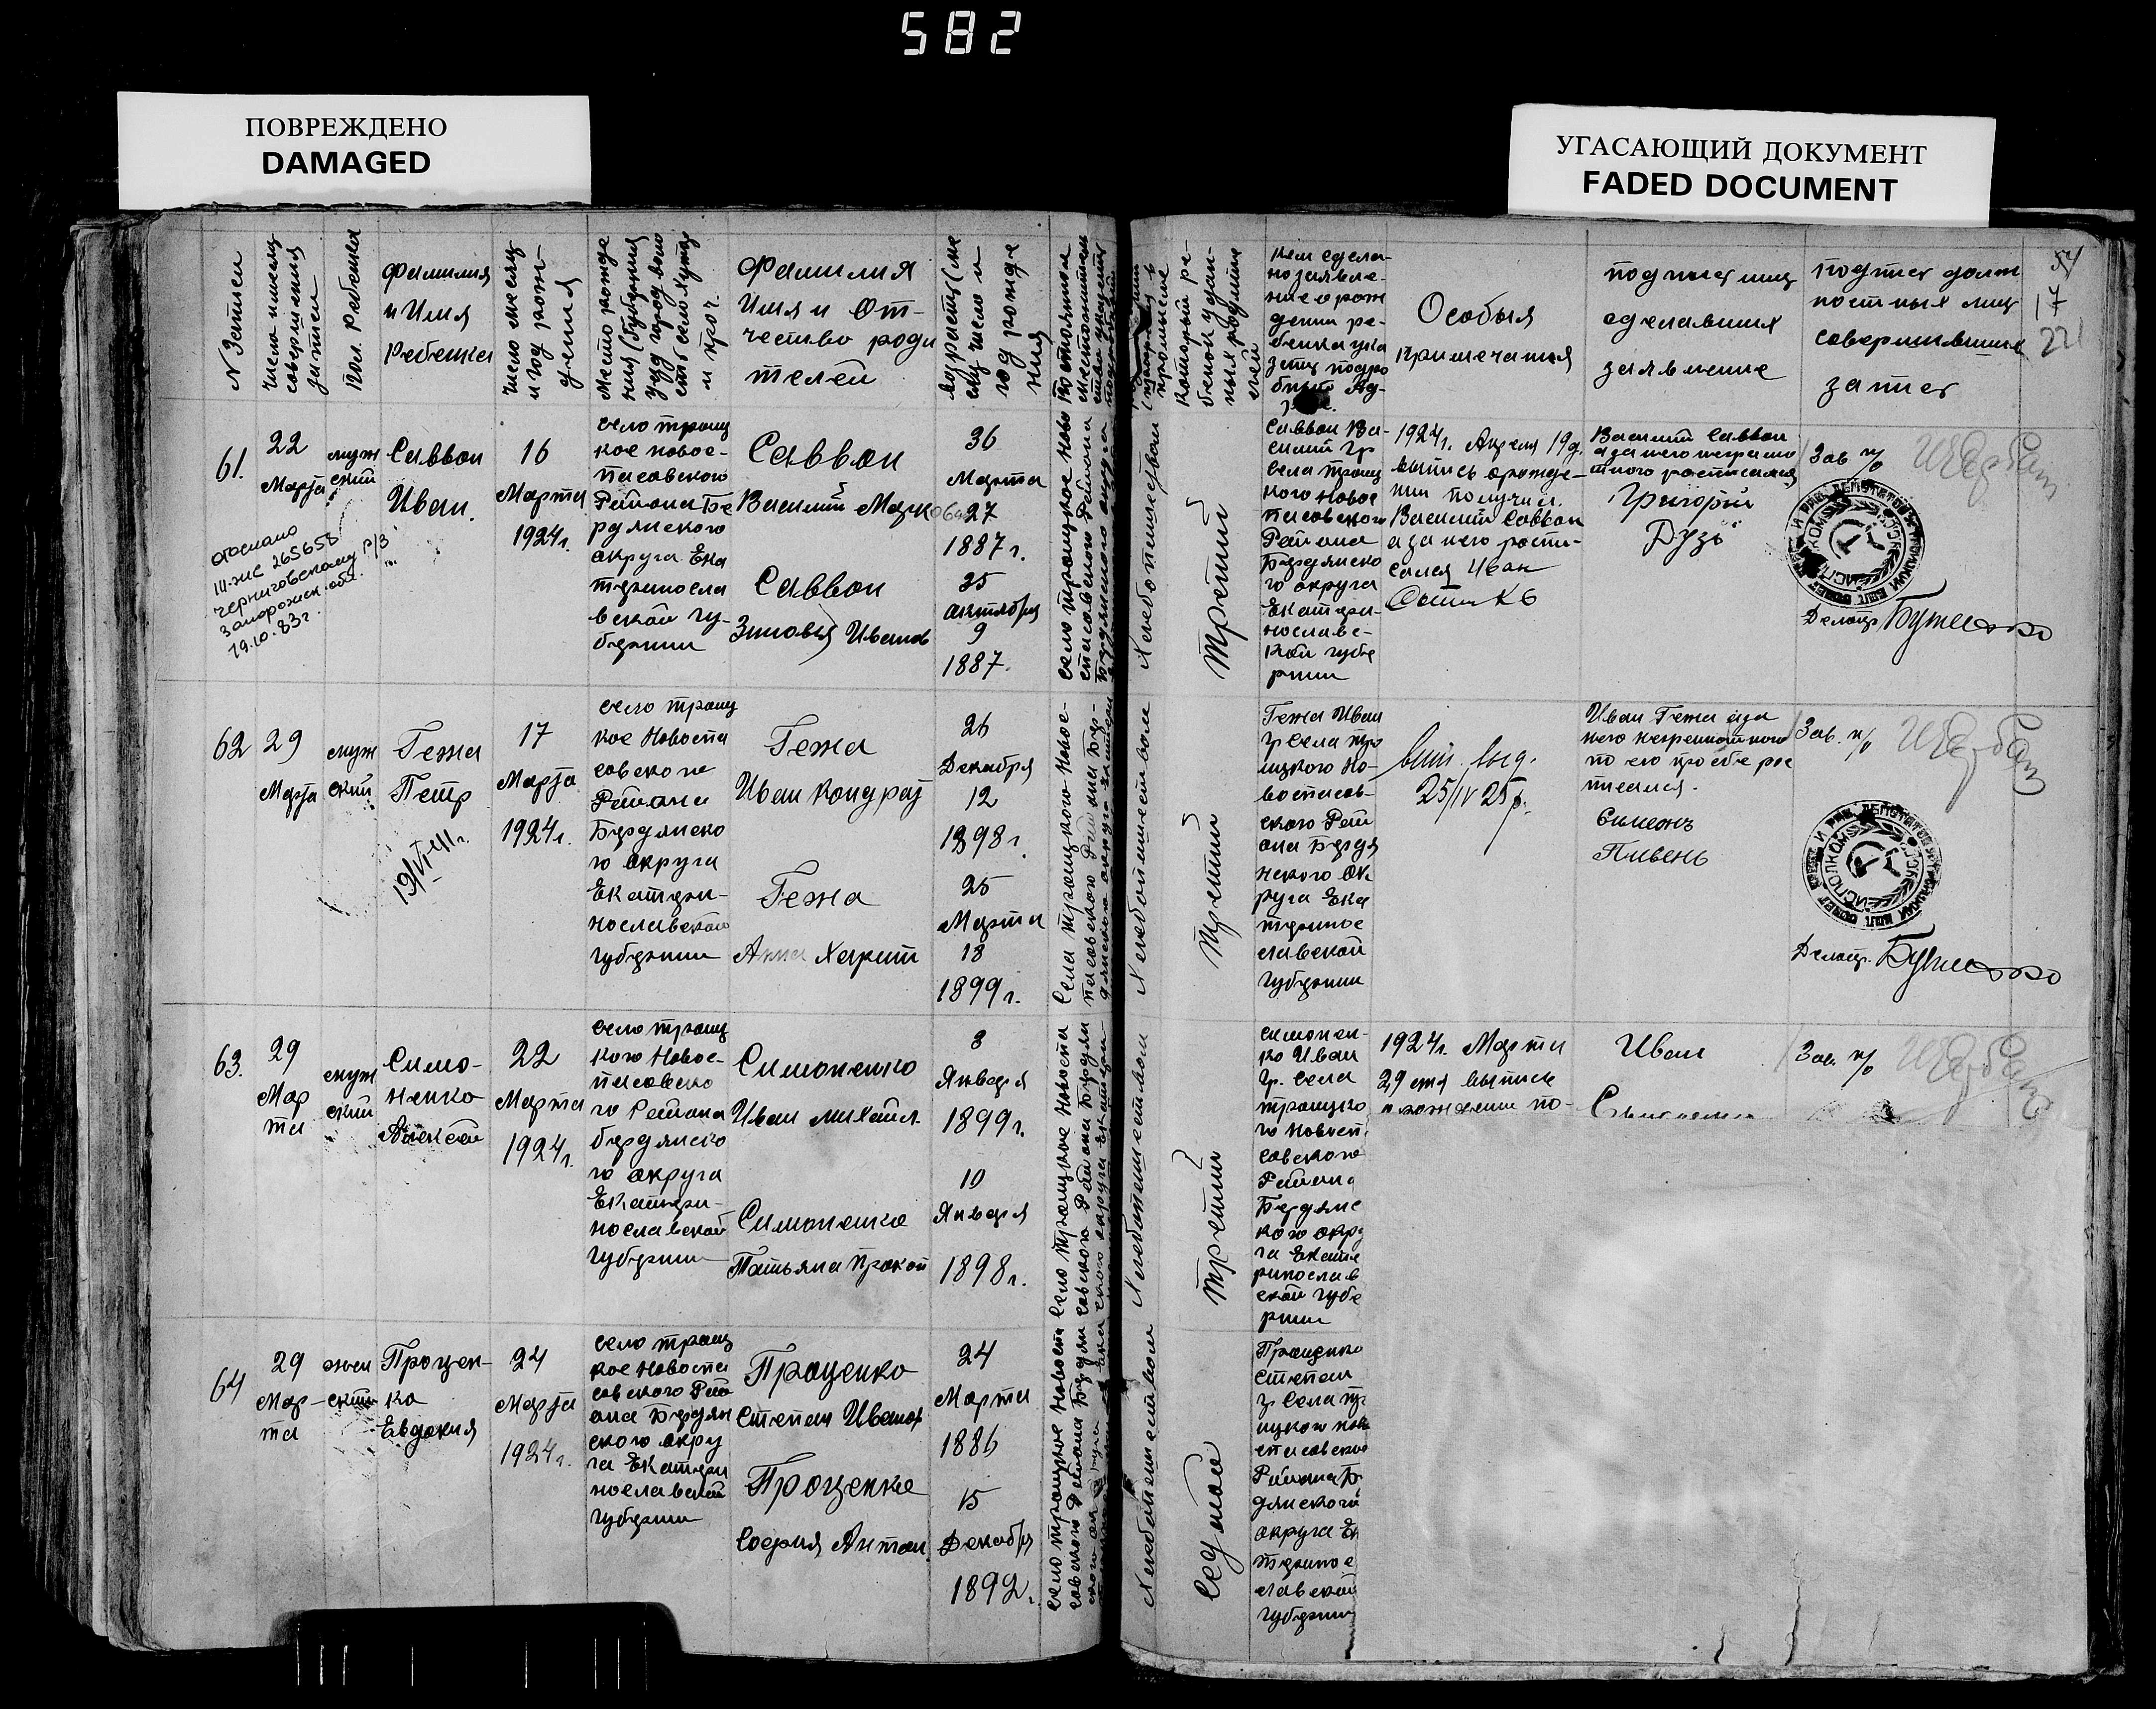 582
ПОВРЕЖДЕНО
DAMAGED
УГАСАЮЩИЙ ДОКУМЕНТ
FADED DOCUMENT
N Записи
число и месяц
совершения
записи
Пол. Ребенка
Фамилия
и Имя
Ребенка
число месяц
и год рож-
дения
место рожде
ния (Губерния
уезд город воло
сть село хутор
и проч.
Фамилия
Имя и От-
чество роди
телей
возраст (ме
сяц число и
год рожде
ния
который ре-
бенок у дан-
ных родите
лей
Кем сдела-
но заявле-
ние о рож
дении ре-
бенка ука
зать подро
бный Ад-
Особыя
примечания
подписи лиц
сделавших
заявление
подпись долж
ностных лиц
совершивших
запись
54
17
221
61.
22
Марта
муж
ский
Саввон
Иван.
16
Марта
1924г.
село троиц
кое новос-
пасовского
Района Бе
рдянского
округа Ека
териносла
вской гу-
бернии
Саввон
Василий Марк
Саввон
Зиновья Иванов
36
Марта
27
1887г.
35
октября
9
1887.
отослано
III-ЖС 265658
Черниговскому Р/З
Запорожск. обл.
19.10.83г.
Хлебопашеством
третий
Саввон Ва-
силий гр
села троиц
кого Новос
пасовского
Района
Бердянско
го округа
Екатери-
нославс-
кой губе
рнии
1924г. Апреля 19д.
выпись о рожде-
нии получил.
Василий Саввон
а за него распи-
сался Иван
Василий Саввон
а за него неграмо
тного росписался
Григорий
Рузь
Зав п/о
Делопр.
62
29
Марта
муж
ский
Гежа
Петр
19/VI-41г.
17
Марта
1924г.
село троиц
кое Новоспа
совского
Района
Бердянско
го округа
Екатери-
нославской
губернии
Гежа
Иван Кондрат
Гежа
Анна Харит
26
Декабря
12
1898г.
25
Марта
18
1899г.
Хлебопашеством
третий
Гежа Иван
гр села тро
ицкого Но-
воспасов-
ского Рай
она Бердя
нского Ок
руга Ека
теринос
лавской
губернии
вып. выд.
25/IV 25р.
Иван Гежа а за
него неграмотного
по его просьбе рос
писался.
Симеонъ
Пивень
Зав. п/о
Делопр.
63.
29
Мар
та
муж
ский
Симо-
ненко
Алексей
22
Марта
1924г.
село троиц
кого Новос-
пасовско
го Района
бердянско
го округа
Екатери-
нославской
губернии
Симоненко
Иван михайл.
Симоненко
Татьяна Прокоп
3
Января
1899г.
10
Января
1898г.
Хлебопашеством
третий
симонен-
ко Иван
гр. села
троицко
го Новосп.
совского
Района
Бердянс
кого окру
га Екате
ринослав
ской губе
рнии
1924г. Марта
29 дня выпись
о рождении по-
Иван
Симоненко
Зав. п/о
64
29
Мар-
та
жен
ский
Процен-
ко
Евдокия
24
Марта
1924г.
село троиц
кое Новоспа
совского Рай
она Бердян
ского окру
га Екатери
нославской
губернии
Проценко
Степан Иванов
Проценко
София Антон.
24
Марта
1886
15
Декабря
1892г.
Хлебопашеством
седьмой
Проценко
степан
гр села тр
ицкого ново
спасовско
Района Бе
дянского
округа Ек
теринос
лавской
губернии